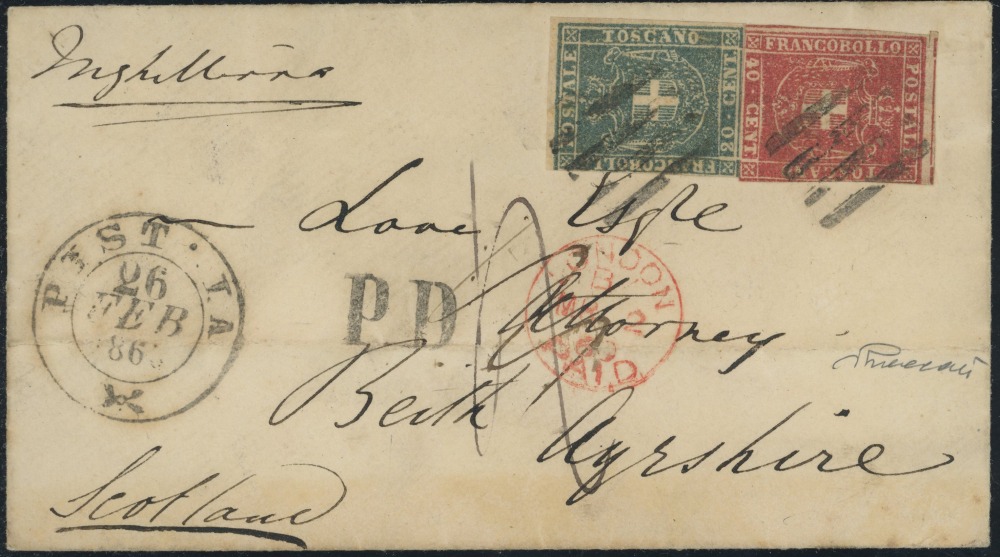 Inghilterra
TOSCANO
POSTALE
20 CENT
FRANCOBOLLO
FRANCOBOLLO
POSTALE
40 CENT
TOSCANO
Love Esqre
Attorney
Beith Ayrshire
Scotland
PIST·IA
26
FEB
86
P.D
LONDON
B
2
PAID